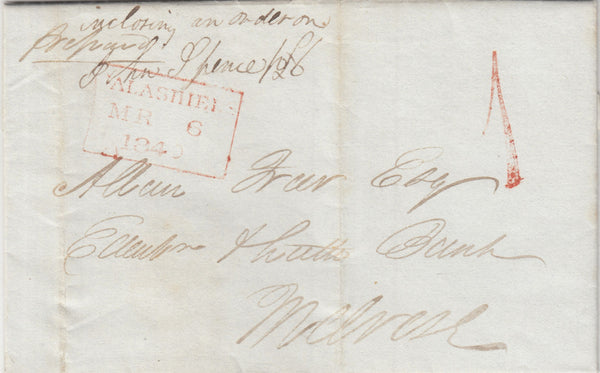 inclosing an order on
Prepaid
John Spence / £6
GALASHIELS
MR 6
1840
1
Allan Freer Esq
& Leith Bank
Melrose